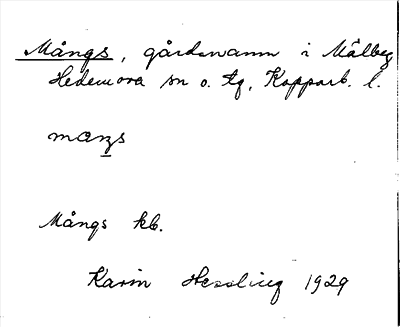 Mångs, gårdsnamn i Målby
Hedemora sn o. tg, Kopparb. l.
maŋs
Mångs kb.
Karin Hessling 1929